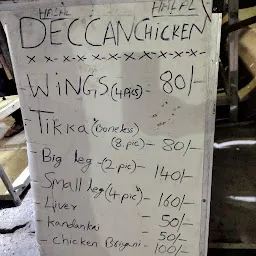 HALAL HALAL
DECCAN CHICKEN
x-x-x-x-x-x-x-x-x-x-x-
- WiNGS (4 PiCS) - 80/-
- TiKKA (Boneless)
(8. pic) - 80/-
- Big leg - (2 pic) - 140/-
- Small leg (4 pic) - 160/-
- Liver - 50/-
- Kandankai - 50/-
- Chicken Briyani - 100/-